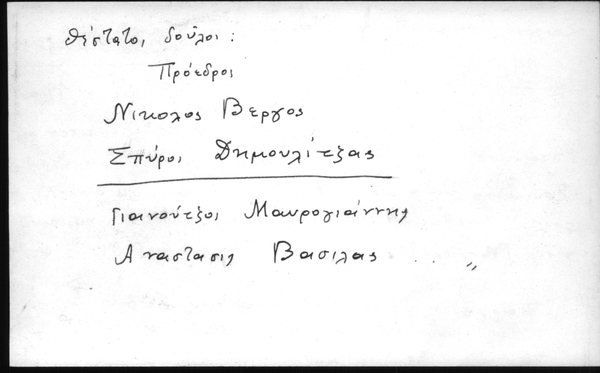 θέστατοι δούλοι :
Πρόεδρος
Νικολος Βεργος
Σπύρος Δημουλίτζας
Γιανούτζος Μαυρογιάννης
Αναστασις Βασιλας . . „